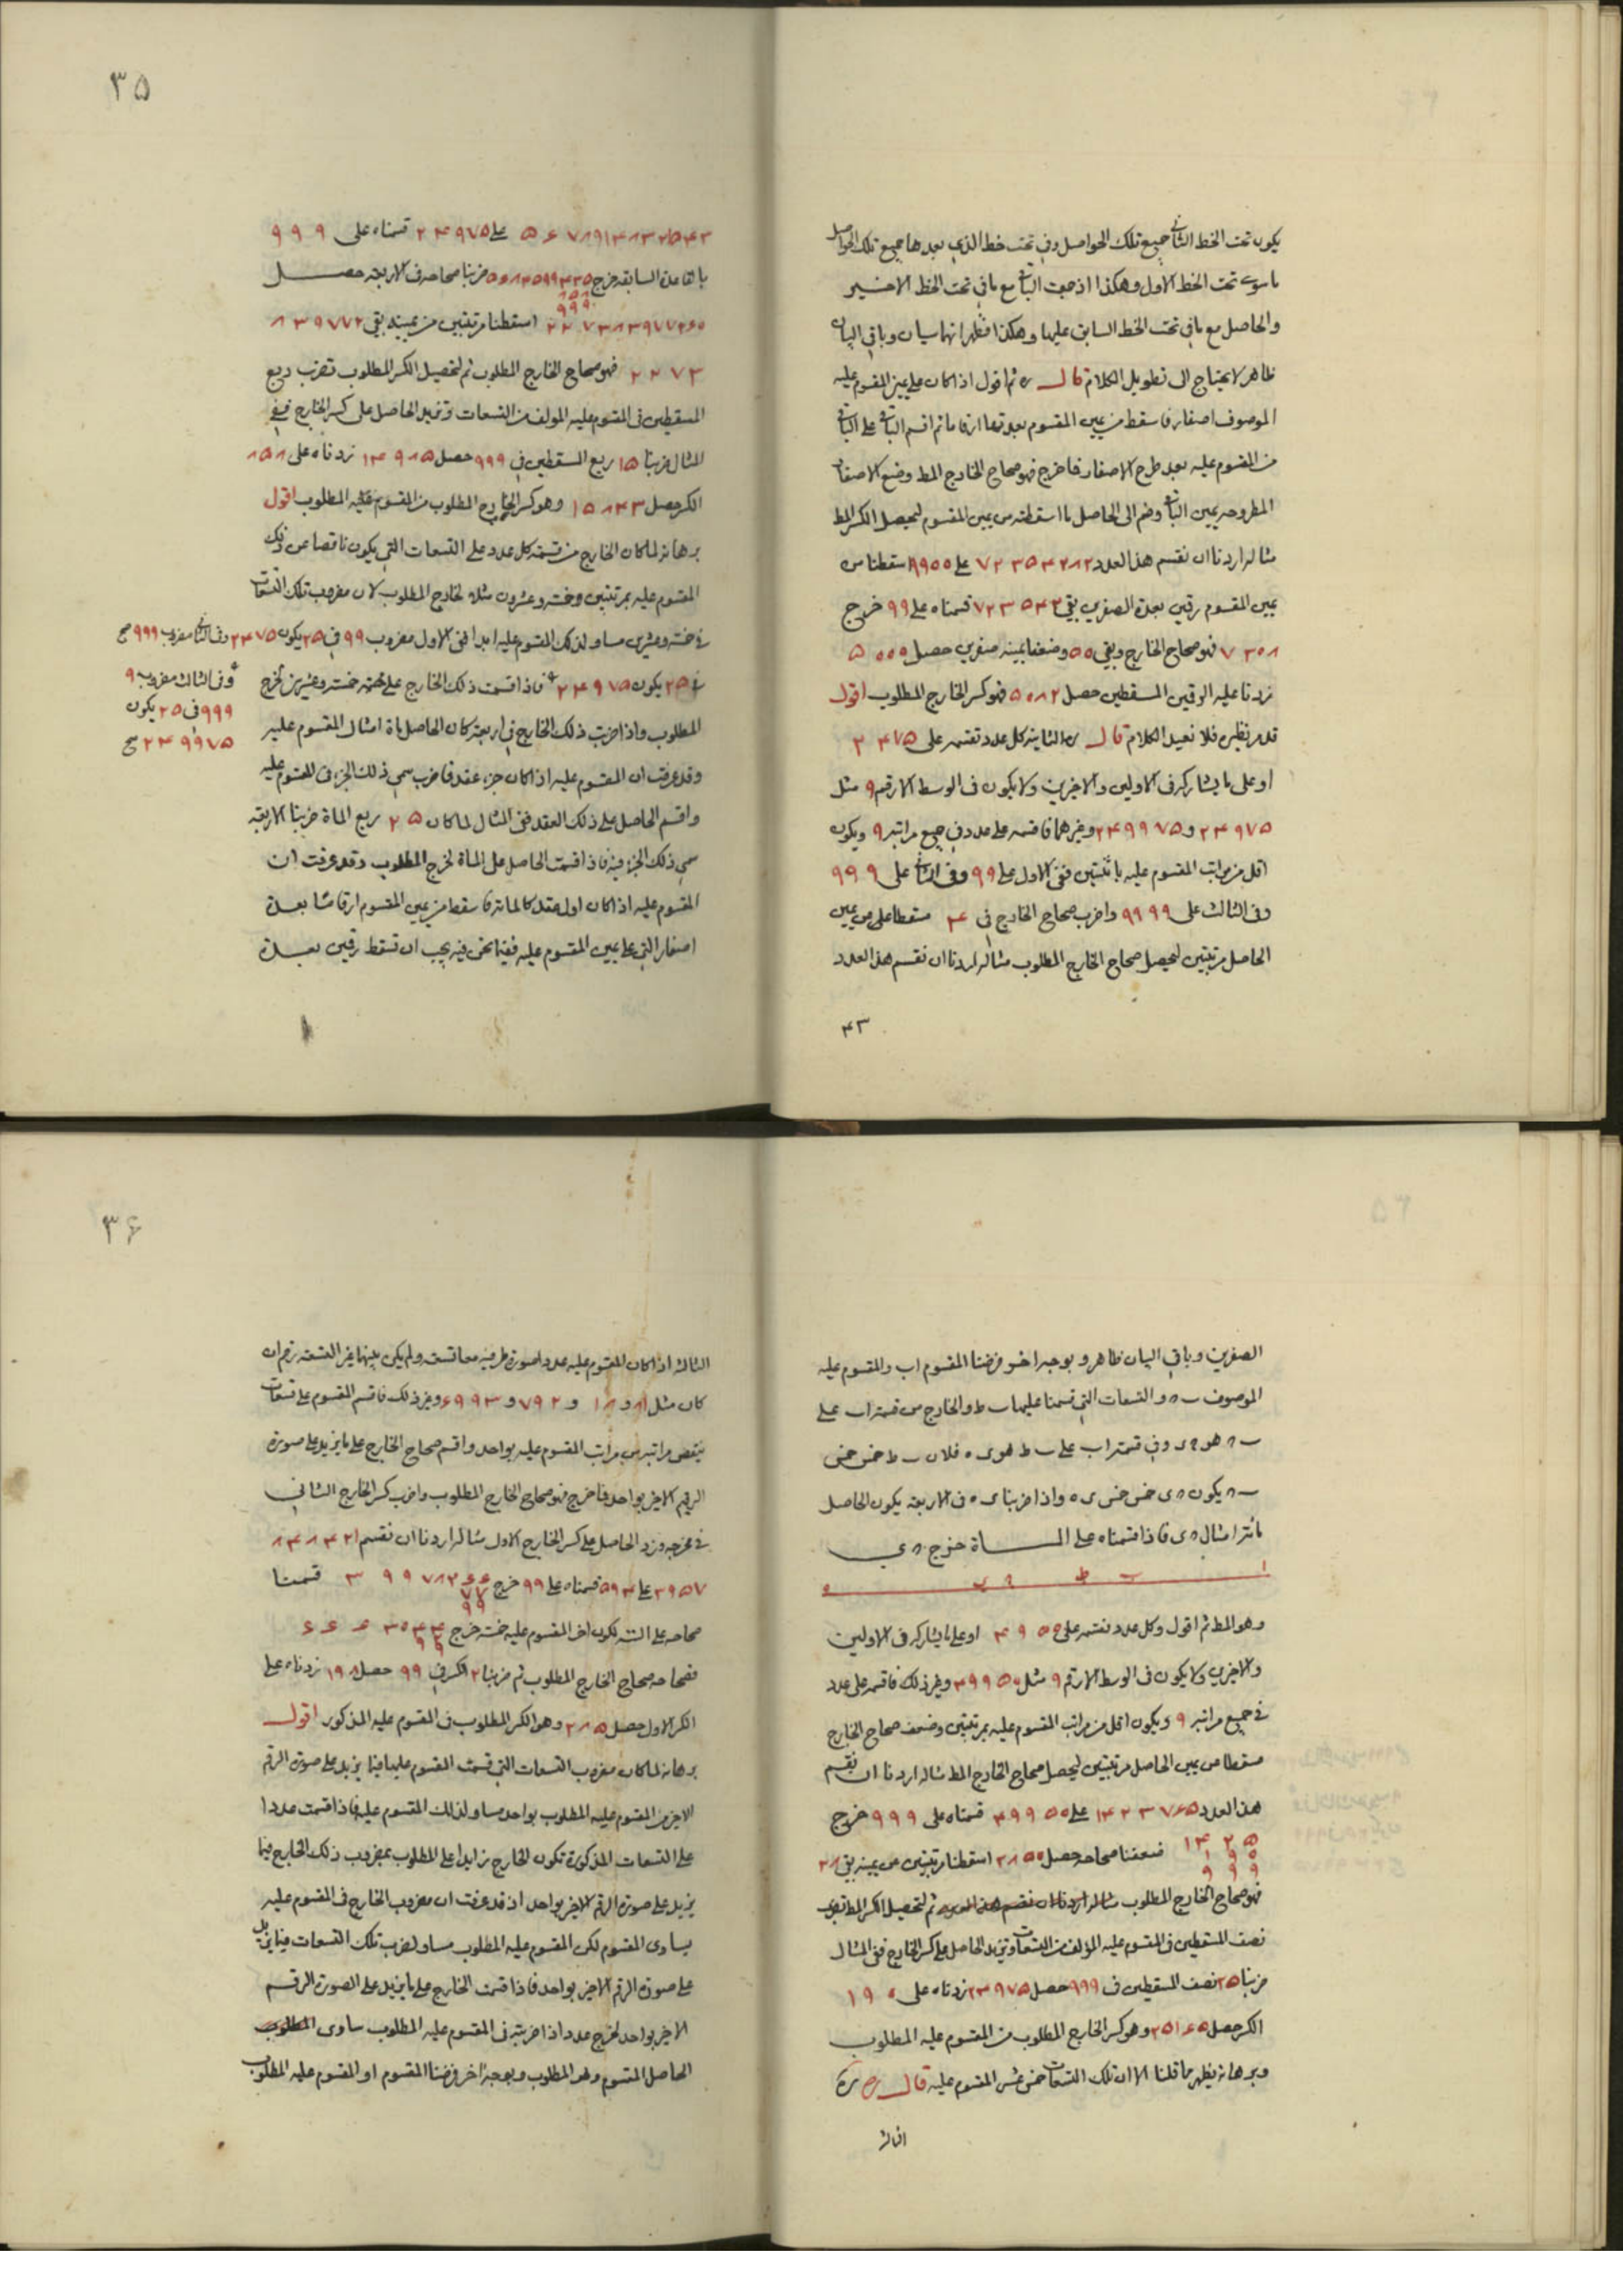 يكون تحت الخط الثاني جميع تلك الحواصل وفي تحت خط الذي بعدها جميع تلك الحواصل
ما سوى تحت الخط الاول وهكذا اذ جمعت الباقي مع ما في تحت الخط الاخير
والحاصل مع ما في تحت الخط السابق عليها وهكذا فظهر انهما سيان وباقي البيان
ظاهر لا يحتاج الى تطويل الكلام قال ره ثم اقول اذا كان على يمين المقسوم عليه
الموصوف اصفار فاسقط من يمين المقسوم بعدتها ارقاما ثم اقسم الباقي على الباقي
من المقسوم عليه بعد طرح الاصفار فما خرج فهو صحاح الخارج المط وضع الاصفار
المطروحة يمين الباقي وضم الى الحاصل ما اسقطته من يمين المقسوم ليحصل الكسر المط
مثاله اردنا ان نقسم هذا العدد ٧٢٣٥٤٢٨٢ على ٩٩٠٠ اسقطنا من
يمين المقسوم رقمين بعدة الصفرين بقي ٧٢٣٥٤٢ قسمناه على ٩٩ خرج
٧٣٠٨ فهو صحاح الخارج وبقي ٥٠ وضعنا يمينه صفرين حصل ٥٠٠٠
زدنا عليه الرقمين المسقطين حصل ٥٠٨٢ فهو كسر الخارج المطلوب اقول
قد مر نظيره فلا نعيد الكلام قال ره الثانية كل عدد تقسمه على ٢٤٧٥
او على ما يشاركه في الاولين والاخرين ولا يكون في الوسط الا رقم ٩ مثل
٢٤٩٧٥ و ٢٤٩٩٧٥ وغيرهما فاقسمه على عدد في جميع مراتبه ٩ ويكون
اقل من مراتب المقسوم عليه باثنتين ففي الاول على ٩٩ وفي الثاني على ٩٩٩
وفي الثالث على ٩٩٩٩ واضرب صحاح الخارج في ٤ مسقطا على من يمين
الحاصل مرتبتين ليحصل صحاح الخارج المطلوب مثاله اردنا ان نقسم هذا العدد
٤٣
٣٥
على ٢٤٩٧٥ قسمناه على ٩٩٩
بالقاعدة السابقة خرج ضربنا صحاحه في الاربعة حصل
اسقطنا مرتبتين من يمينه بقي
٢٢٧٣ فهو صحاح الخارج المطلوب ثم لتحصيل الكسر المطلوب تضرب ربع
المسقطين في المقسوم عليه المولف من التسعات وتزيد الحاصل على كسر الخارج ففي
المثال ضربنا ١٥ ربع المسقطين في ٩٩٩ حصل ١٤٩٨٥ زدناه على ٨٥٨
الكسر حصل ١٥٨٤٣ وهو كسر الخارج المطلوب من المقسوم عليه المطلوب اقول
برهانه لما كان الخارج من قسمة كل عدد على التسعات التي يكون ناقصا عن ذلك
المقسوم عليه بمرتبتين وخمسة وعشرون مثله لخارج المطلوب لان مضروب تلك التسعات
في خمسة وعشرين مساو لذلك المقسوم عليه ابدا ففي الاول مضروب ٩٩ في ٢٥ يكون ٢٤٧٥ وفي الثاني مضروب ٩٩٩ صح
في ٢٥ يكون ٢٤٩٧٥ فاذا قسمت ذلك الخارج على خمسة وعشرين لخرج
وفي الثالث مضروب ٩
٩٩٩ في ٢٥ يكون
٢٤٩٩٧٥ صح
المطلوب واذا ضربت ذلك الخارج في اربعة كان الحاصل ماة امثال المقسوم عليه
وقد عرفت ان المقسوم عليه اذا كان جزء عقد فاضرب سمي ذلك الجزء في المقسوم عليه
واقسم الحاصل على ذلك العقد ففي المثال لما كان ٢٥ ربع الماة ضربنا الاربعة
سمي ذلك الجزء فيه فاذا قسمت الحاصل على الماة لخرج المطلوب وقد عرفت ان
المقسوم عليه اذا كان اول عقد كالماة فاسقط من يمين المقسوم ارقاما بعدة
اصفار التي على يمين المقسوم عليه ففيما نحن فيه يجب ان تسقط رقمين بعدة
الصفرين وباقي البيان ظاهر وبوجه اخر فرضنا المقسوم اب والمقسوم عليه
الموصوف والتسعات التي قسمنا عليها ب ط والخارج من قسمة اب على
هو وفي قسمة اب على ب ط هو ي ه فلان ب ط خمس خمس
يكون خمس خمس ي ه واذا ضربنا ي ه في الاربعة يكون الحاصل
مأة امثال فاذا قسمناه على المأة خرج
وهو المط ثم اقول وكل عدد تقسمه على ٤٩٥٠ او على ما يشاركه في الاولين
والاخرين ولا يكون في الوسط الا رقم ٩ مثل ٤٩٩٥٠ وغير ذلك فاقسمه على عدد
في جميع مراتبه ٩ ويكون اقل من مراتب المقسوم عليه بمرتبتين وضعف صحاح الخارج
مسقطا من يمين الحاصل مرتبتين ليحصل صحاح الخارج المط مثاله اردنا ان نقسم
هذا العدد ١٤٢٣٧٦٥ على ٤٩٩٥٠ قسمناه على ٩٩٩ خرج
١٤٢٥
١٩٠
٩٩٩
ضعفنا صحاحه حصل ٢٨٥٠ اسقطنا مرتبتين من يمينه بقي ٢٨
فهو صحاح الخارج المطلوب ثم لتحصيل الكسر المط تضرب
نصف المسقطين في المقسوم عليه المؤلف من التسعات وتزيد الحاصل على كسر الخارج ففي المثال
ضربنا ٢٥ نصف المسقطين في ٩٩٩ حصل ٢٤٩٧٥ زدناه على ١٩٠
الكسر حصل ٢٥١٦٥ وهو كسر الخارج المطلوب من المقسوم عليه المطلوب
وبرهانه يظهر مما قلنا الا ان تلك التسعات خمس عشر المقسوم عليه قال ره
الثالثة
٣٦
الثالثة اذا كان المقسوم عليه عددا صورة طرفيه معا تسعة ولم يكن بينهما غير التسعة رقم ان
كان مثل ٨١ و ١٨ و ٧٩٢ و ٦٩٩٣ وغير ذلك فاقسم المقسوم على تسعات
ينقص مراتبه من مراتب المقسوم عليه بواحد واقسم صحاح الخارج على ما يزيد على صورة
الرقم الاخير بواحد فما خرج فهو صحاح الخارج المطلوب واضرب كسر الخارج الثاني
في مخرجه وزد الحاصل على كسر الخارج الاول مثاله اردنا ان نقسم
على ٥٩٤ قسمناه على ٩٩ خرج قسمنا
صحاحه على الستة لكون اخر المقسوم عليه خمسة خرج
فصحاحه صحاح الخارج المطلوب ثم ضربنا ٢ الكسر في ٩٩ حصل ١٩٨ زدناه على
الكسر الاول حصل ٢٨٥ وهو الكسر المطلوب من المقسوم عليه المذكور اقول
برهانه لما كان مضروب التسعات التي قسمت المقسوم عليها فيما يزيد على صورة الرقم
الاخير من المقسوم عليه المطلوب بواحد مساو لذلك المقسوم عليه فاذا قسمت عددا
على التسعات المذكورة تكون الخارج زايدا على المطلوب بمضروب ذلك الخارج فيما
يزيد على صورة الرقم الاخير بواحد اذ قد عرفت ان مضروب الخارج في المقسوم عليه
يساوي المقسوم لكن المقسوم عليه المطلوب مساو لضرب تلك التسعات فيما يزيد
على صورة الرقم الاخير بواحد فاذا قسمت الخارج على ما يزيد على الصورة الرقم
الاخير بواحد لخرج عدد اذا ضربته في المقسوم عليه المطلوب ساوى
الحاصل المقسوم وهو المطلوب وبوجه اخر فرضنا المقسوم او المقسوم عليه المطلوب